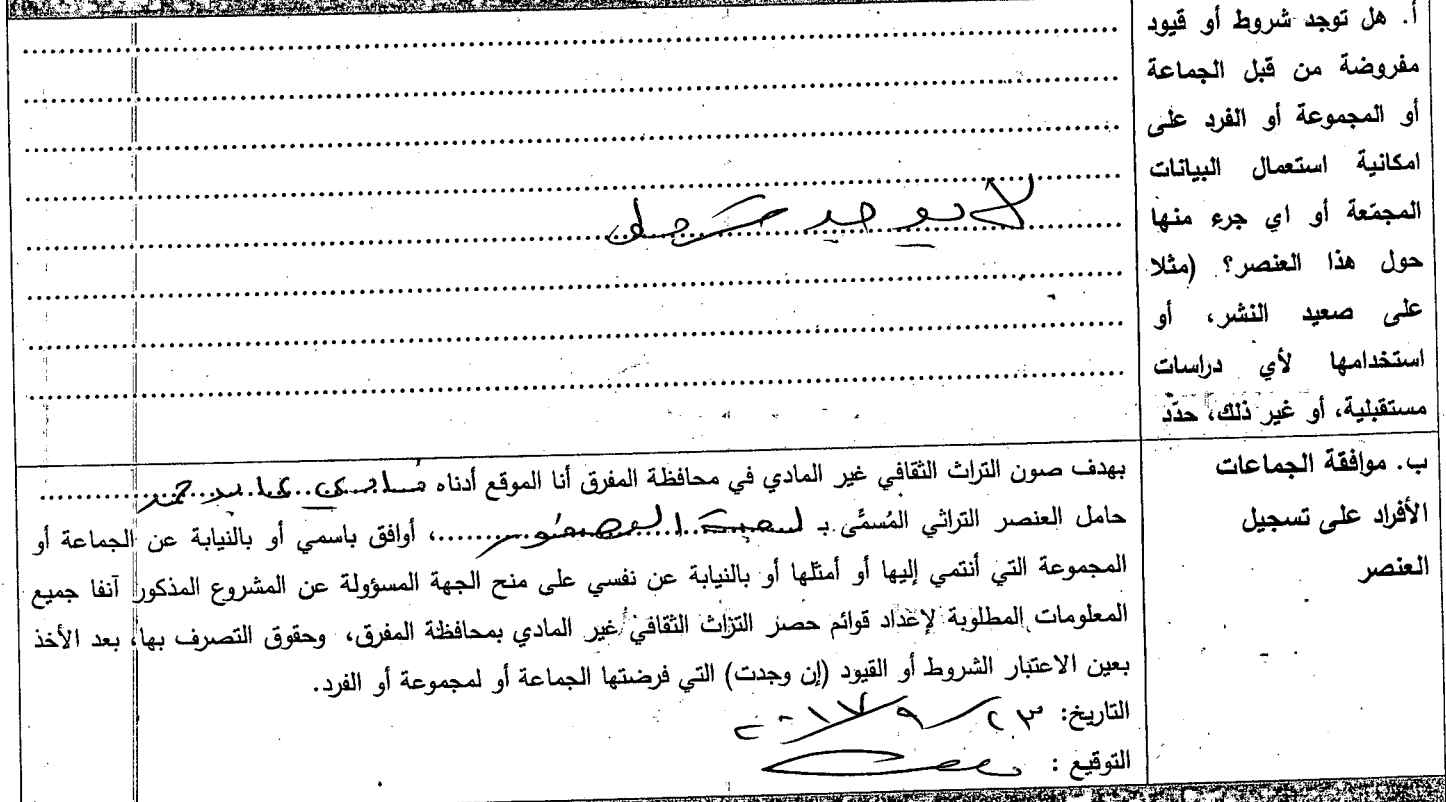 أ. هل توجد شروط أو قيود
مفروضة من قبل الجماعة
أو المجموعة أو الفرد على
امكانية استعمال البيانات
المجمّعة أو اي جرء منها
حول هذا العنصر؟ (مثلا
على صعيد النشر، أو
استخدامها لأي دراسات
مستقبلية، أو غير ذلك، حدّد
لا يوجد
ب. موافقة الجماعات
الأفراد على تسجيل
العنصر
بهدف صون التراث الثقافي غير المادي في محافظة المفرق أنا الموقع أدناه
حامل العنصر التراثي المُسمَّى بـ لعبة، أوافق باسمي أو بالنيابة عن الجماعة أو
المجموعة التي أنتمي إليها أو أمثلها أو بالنيابة عن نفسي على منح الجهة المسؤولة عن المشروع المذكور آنفا جميع
المعلومات المطلوبة لإعداد قوائم حصر التراث الثقافي غير المادي بمحافظة المفرق، وحقوق التصرف بها، بعد الأخذ
بعين الاعتبار الشروط أو القيود (إن وجدت) التي فرضتها الجماعة أو لمجموعة أو الفرد.
التاريخ: ٢٣/٩/٢٠١٧
التوقيع :